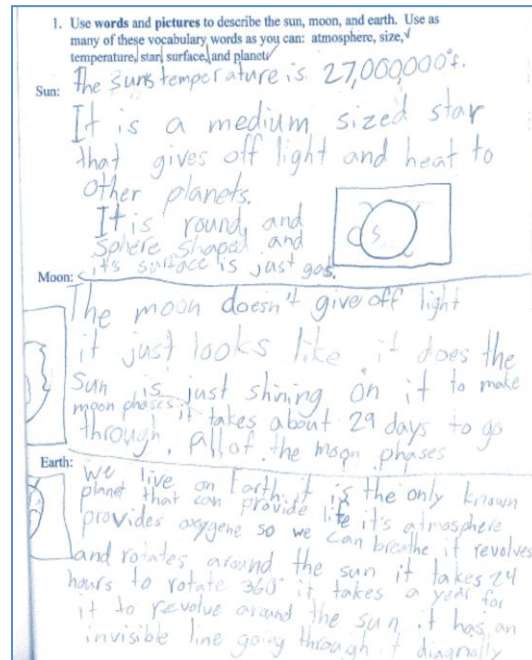 1. Use words and pictures to describe the sun, moon, and earth. Use as
many of these vocabulary words as you can: atmosphere, size,
temperature, star, surface, and planet.
Sun: The suns temperature is 27,000,000°f.
It is a medium sized star
that gives off light and heat to
other planets.
It is round, and
sphere shaped and
it's surface is just gas.
S
Moon:
The moon doesn't give off light
it just looks like it does the
Sun is just shining on it to make
moon phases it takes about 29 days to go
through. All of the moon phases
Earth:
we live on Earth. it is the only known
planet that can provide life it's atmosphere
provides oxygene so we can breathe it revolves
and rotates around the sun it takes 24
hours to rotate 360° it takes a year for
it to revolve around the sun. it has an
invisible line going through it diagnally